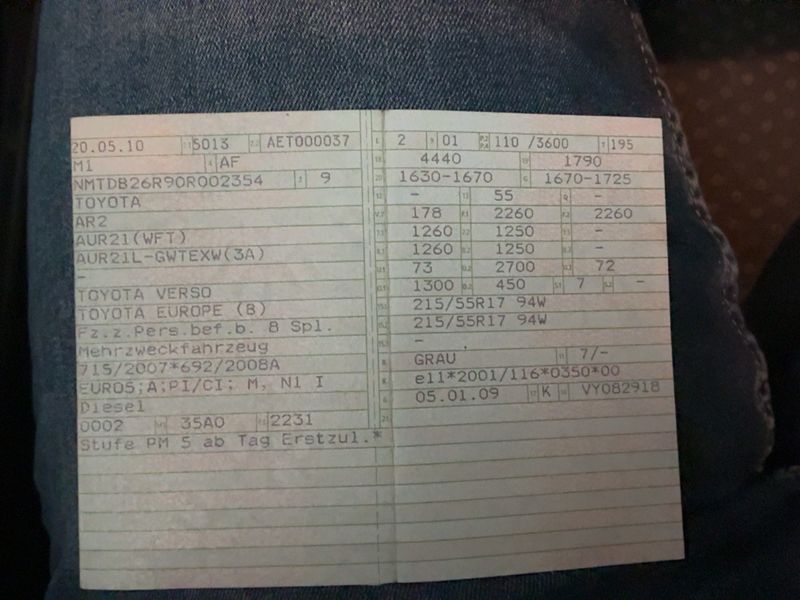 20.05.10 5013 AET000037
M1 AF
NMTDB26R90R002354 9
TOYOTA
AR2
AUR21(WFT)
AUR21L-GWTEXW(3A)
-
TOYOTA VERSO
TOYOTA EUROPE (B)
Fz.z.Pers.bef.b. 8 Spl.
Mehrzweckfahrzeug
715/2007*692/2008A
EURO5;A;PI/CI; M, N1 I
Diesel
0002 35A0 2231
Stufe PM 5 ab Tag Erstzul.*
2 01 110 /3600 195
4440 1790
1630-1670 1670-1725
- 55 -
178 2260 2260
1260 1250 -
1260 1250 -
73 2700 72
1300 450 7 -
215/55R17 94W
215/55R17 94W
-
GRAU 7/-
e11*2001/116*0350*00
05.01.09 K VY082918